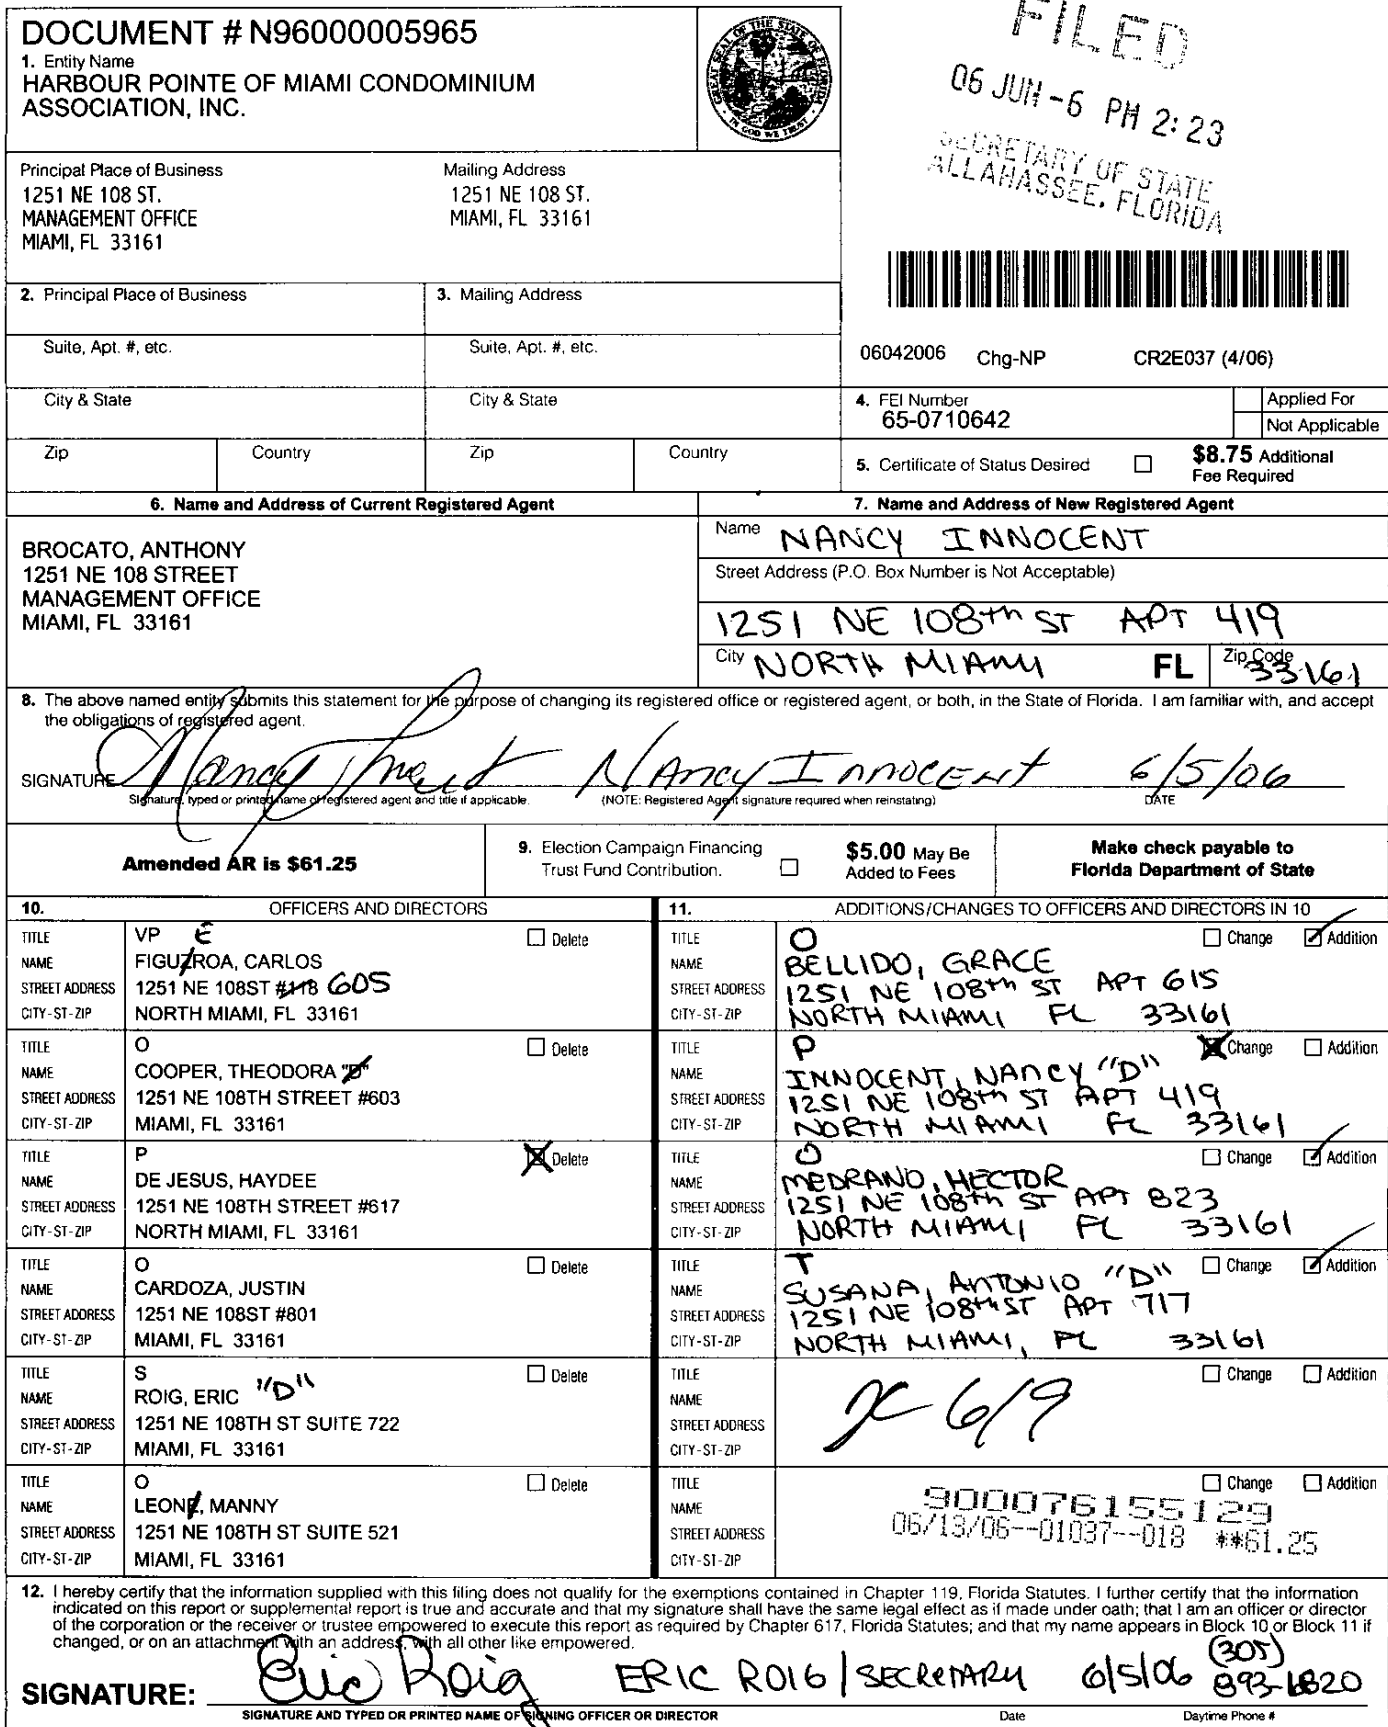 DOCUMENT # N96000005965
1. Entity Name
HARBOUR POINTE OF MIAMI CONDOMINIUM
ASSOCIATION, INC.
GREAT SEAL OF THE STATE OF FLORIDA
IN GOD WE TRUST
FILED
06 JUN -6 PM 2:23
SECRETARY OF STATE
ALLAHASSEE, FLORIDA
Principal Place of Business
1251 NE 108 ST.
MANAGEMENT OFFICE
MIAMI, FL 33161
Mailing Address
1251 NE 108 ST.
MIAMI, FL 33161
2. Principal Place of Business
3. Mailing Address
Suite, Apt. #, etc.
Suite, Apt. #, etc.
06042006 Chg-NP CR2E037 (4/06)
City & State
City & State
4. FEI Number
65-0710642
Applied For
Not Applicable
Zip Country
Zip Country
5. Certificate of Status Desired
$8.75 Additional
Fee Required
6. Name and Address of Current Registered Agent
BROCATO, ANTHONY
1251 NE 108 STREET
MANAGEMENT OFFICE
MIAMI, FL 33161
7. Name and Address of New Registered Agent
Name NANCY INNOCENT
Street Address (P.O. Box Number is Not Acceptable)
1251 NE 108th ST APT 419
City NORTH MIAMI FL Zip Code 33161
8. The above named entity submits this statement for the purpose of changing its registered office or registered agent, or both, in the State of Florida. I am familiar with, and accept
the obligations of registered agent.
SIGNATURE Nancy Innocent Nancy Innocent 6/5/06
Signature, typed or printed name of registered agent and title if applicable. (NOTE: Registered Agent signature required when reinstating) DATE
Amended AR is $61.25
9. Election Campaign Financing
Trust Fund Contribution.
$5.00 May Be
Added to Fees
Make check payable to
Florida Department of State
10. OFFICERS AND DIRECTORS
TITLE VP E Delete
NAME FIGUZROA, CARLOS
STREET ADDRESS 1251 NE 108ST #118 605
CITY-ST-ZIP NORTH MIAMI, FL 33161
TITLE O Delete
NAME COOPER, THEODORA "D"
STREET ADDRESS 1251 NE 108TH STREET #603
CITY-ST-ZIP MIAMI, FL 33161
TITLE P Delete
NAME DE JESUS, HAYDEE
STREET ADDRESS 1251 NE 108TH STREET #617
CITY-ST-ZIP NORTH MIAMI, FL 33161
TITLE O Delete
NAME CARDOZA, JUSTIN
STREET ADDRESS 1251 NE 108ST #801
CITY-ST-ZIP MIAMI, FL 33161
TITLE S Delete
NAME ROIG, ERIC "D"
STREET ADDRESS 1251 NE 108TH ST SUITE 722
CITY-ST-ZIP MIAMI, FL 33161
TITLE O Delete
NAME LEONE, MANNY
STREET ADDRESS 1251 NE 108TH ST SUITE 521
CITY-ST-ZIP MIAMI, FL 33161
11. ADDITIONS/CHANGES TO OFFICERS AND DIRECTORS IN 10
TITLE O Change Addition
NAME BELLIDO, GRACE
STREET ADDRESS 1251 NE 108th ST APT 615
CITY-ST-ZIP NORTH MIAMI FL 33161
TITLE P Change Addition
NAME INNOCENT, NANCY "D"
STREET ADDRESS 1251 NE 108th ST APT 419
CITY-ST-ZIP NORTH MIAMI FL 33161
TITLE O Change Addition
NAME MEDRANO, HECTOR
STREET ADDRESS 1251 NE 108th ST APT 823
CITY-ST-ZIP NORTH MIAMI FL 33161
TITLE T Change Addition
NAME SUSANA, ANTONIO "D"
STREET ADDRESS 1251 NE 108th ST APT 717
CITY-ST-ZIP NORTH MIAMI, FL 33161
TITLE Change Addition
NAME 6/9
STREET ADDRESS
CITY-ST-ZIP
TITLE Change Addition
NAME 900076155129
STREET ADDRESS 06/13/06--01037--018 **61.25
CITY-ST-ZIP
12. I hereby certify that the information supplied with this filing does not qualify for the exemptions contained in Chapter 119, Florida Statutes. I further certify that the information
indicated on this report or supplemental report is true and accurate and that my signature shall have the same legal effect as if made under oath; that I am an officer or director
of the corporation or the receiver or trustee empowered to execute this report as required by Chapter 617, Florida Statutes; and that my name appears in Block 10 or Block 11 if
changed, or on an attachment with an address, with all other like empowered.
SIGNATURE: Eric Roig ERIC ROIG / SECRETARY 6/5/06 (305) 893-6820
SIGNATURE AND TYPED OR PRINTED NAME OF SIGNING OFFICER OR DIRECTOR Date Daytime Phone #